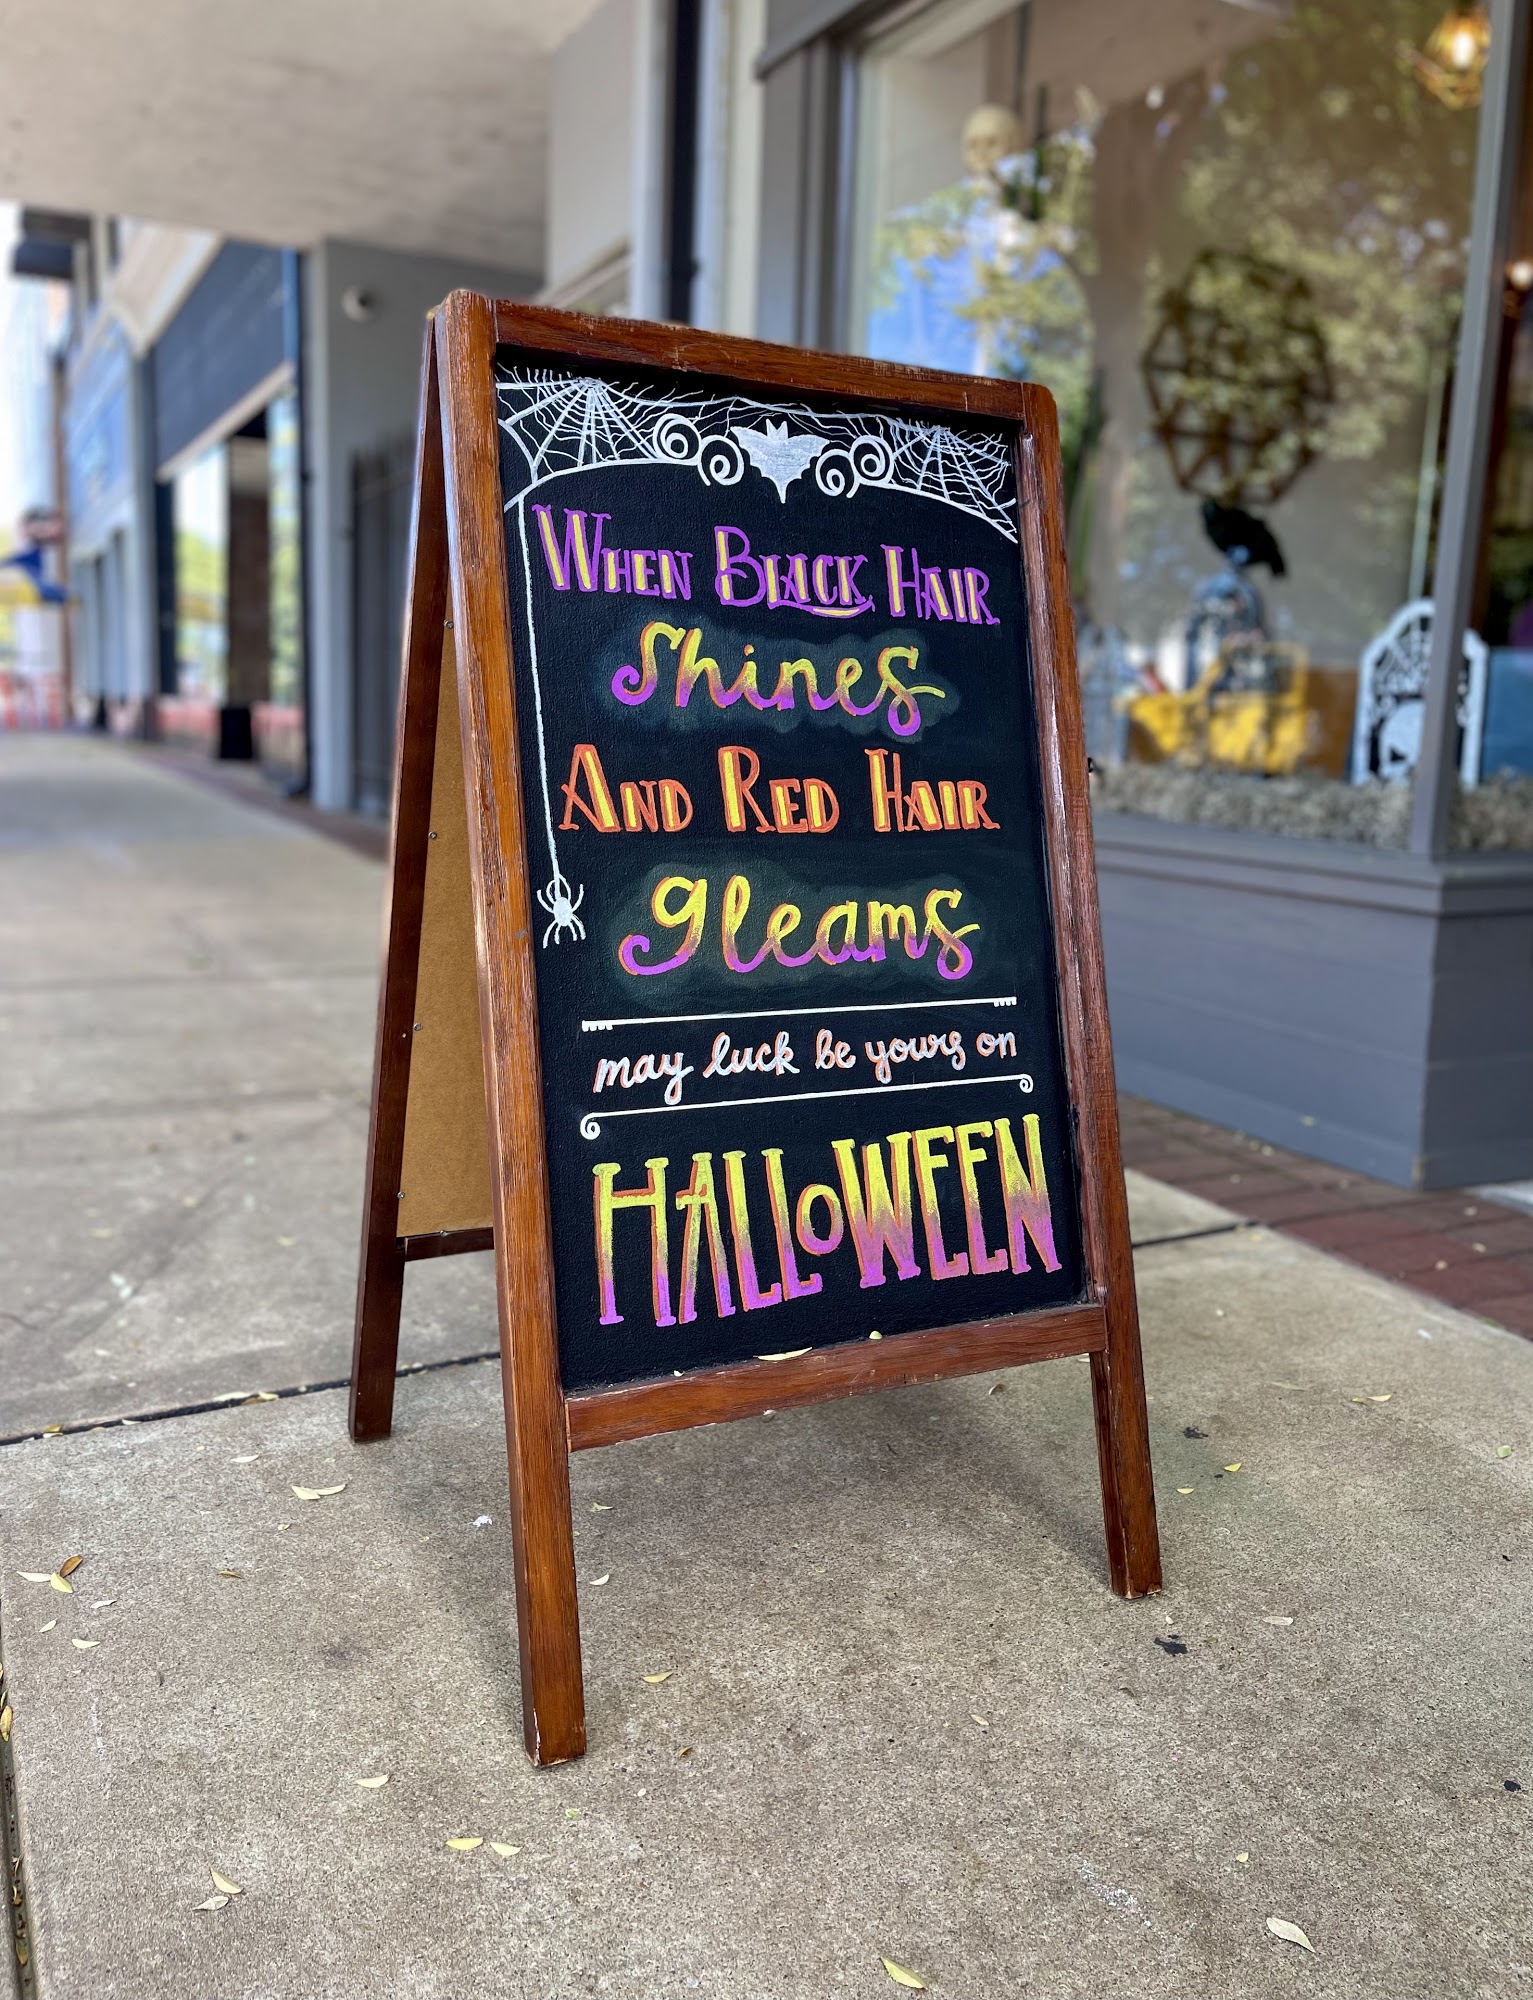 When Black Hair
Shines
And Red Hair
gleams
may luck be yours on
HALLoWEEN